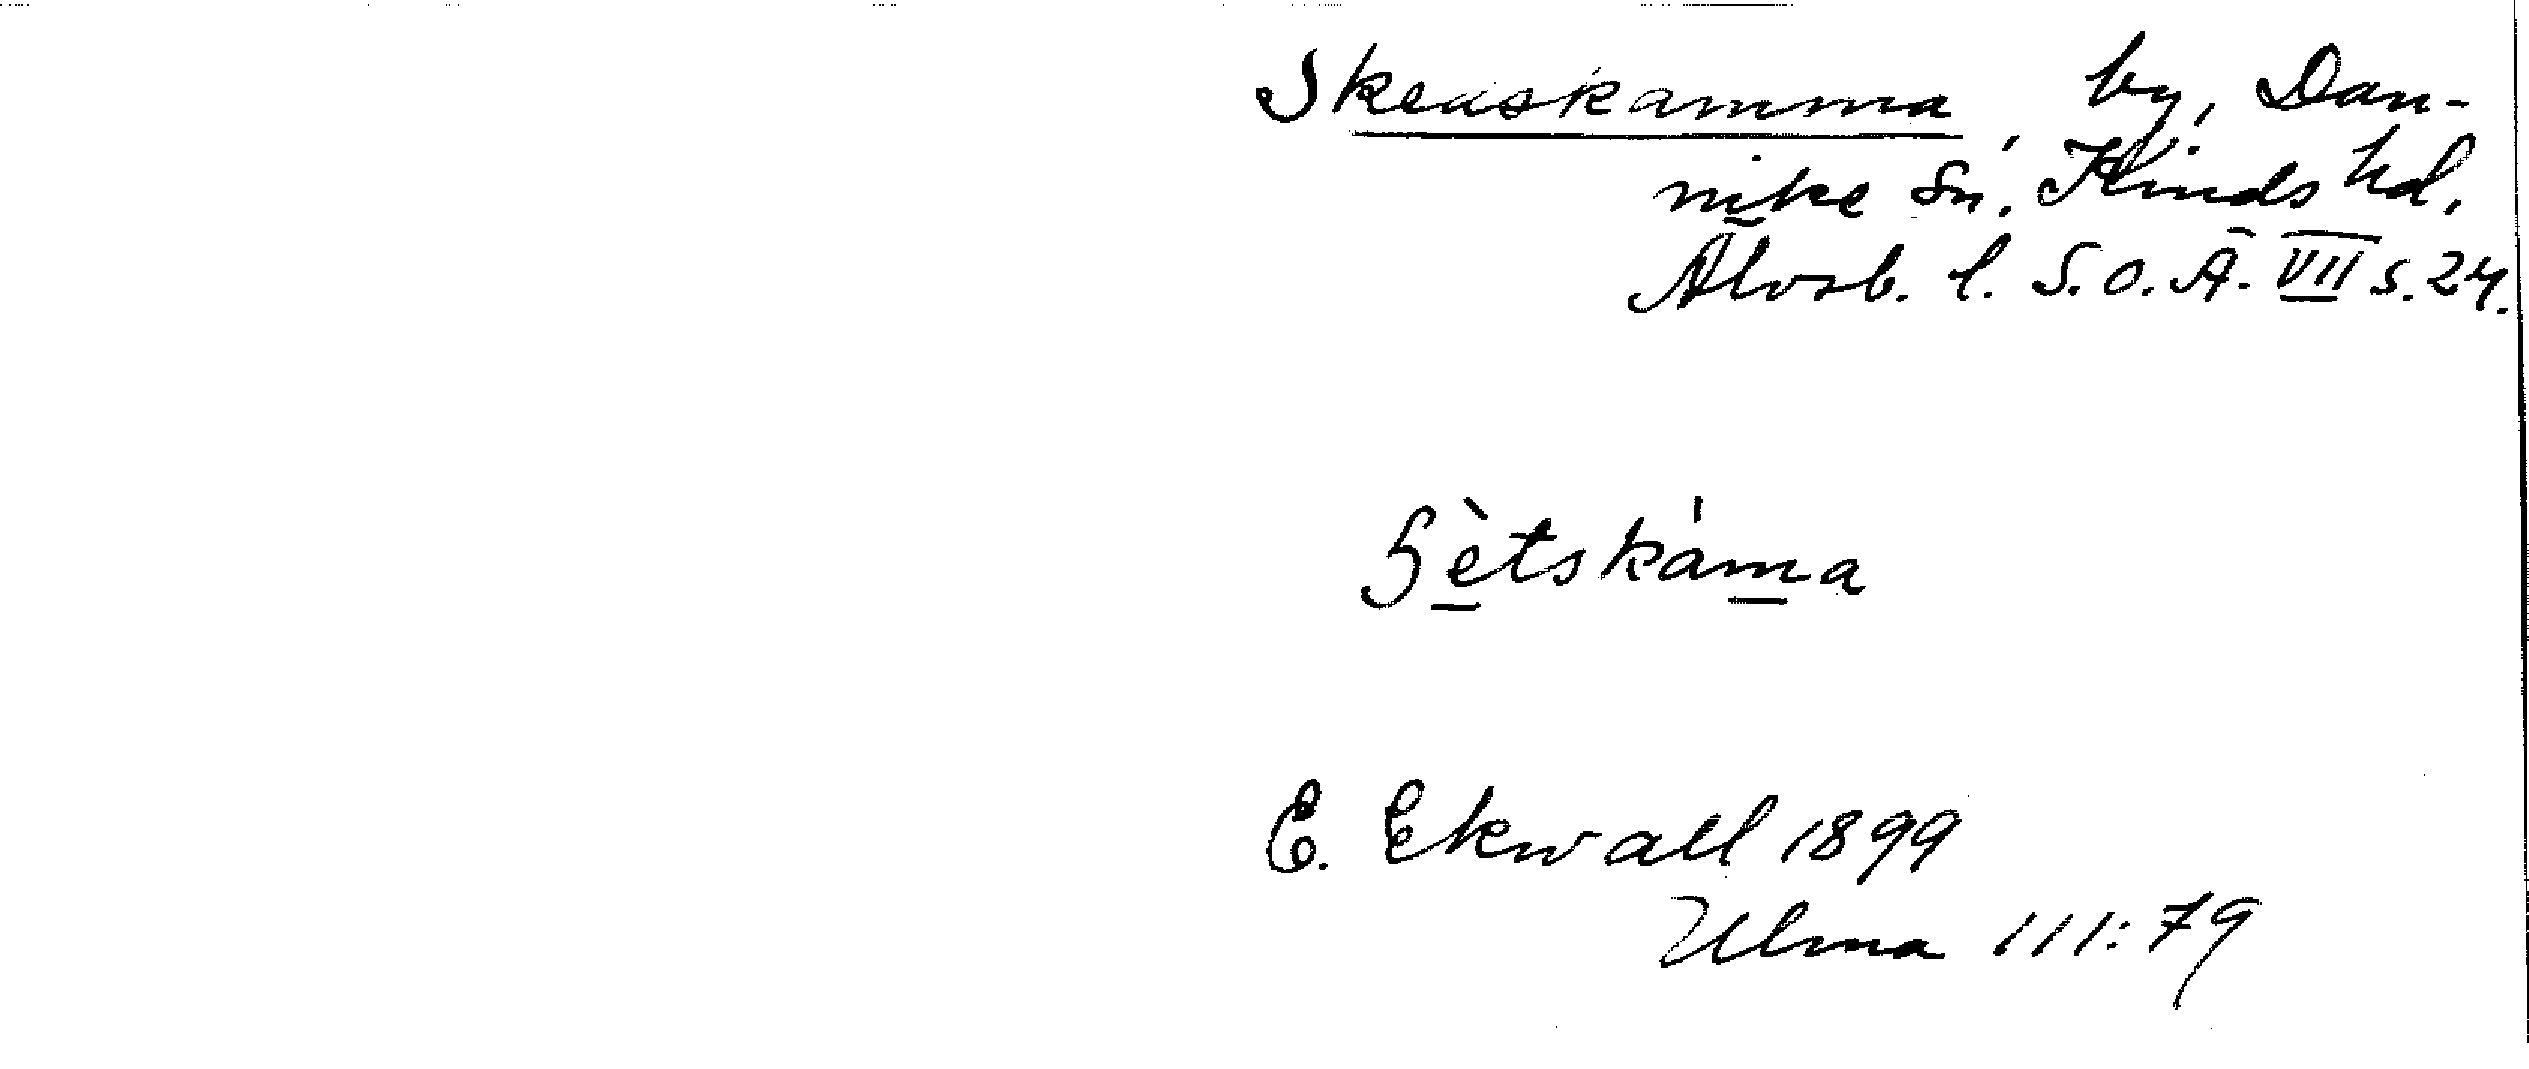 Skenskamma, by, Dan-
nike sn. Kinds hd,
Älvsb. l. S.O.Ä. VII s. 24.
Sètskáma
E. Ekwall 1899
Ulma 111:79